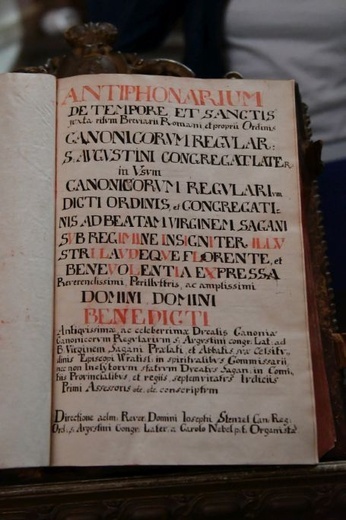 ANTIPHONARIUM
DE TEMPORE ET SANCTIS
juxta ritum Breviarii Romani, et proprii Ordinis
CANONICORVM REGVLAR:
S. AVGVSTINI CONGREGAT: LATER
in Vsum
CANONICORVM REGVLARIum
DICTI ORDINIS, et CONGREGATI-
NIS AD BEATAM VIRGINEM, SAGANI
SVB REGIMINE INSIGNITER, ILLV
STRI LAVDEQVE FLORENTE, et
BENEVOLENTIA EXPRESSA
Reverendissimi, Perillustris, ac amplissimi
DOMINI DOMINI
BENEDICTI
Antiquissimæ, ac celeberrimæ Canoniæ
Canonicorum Regularium S. Augustini congr. Lat. ad
B. Virginem Sagani Prælati, et Abbatis,
Episcopi Wratisl. in spiritualibus Commissarii,
nec non Inclytorum statuum Ducatus Sagan. in Comi,
tiis Provincialibus, et regiis, Iudiciis
Primi Assessoris &c. &c. conscriptum
Directione adm: Rever. Domini Iosephi Stenzel Can: Reg:
Ord: S. Augustini Congr: Later. a Carolo Nobel p.t. Organista